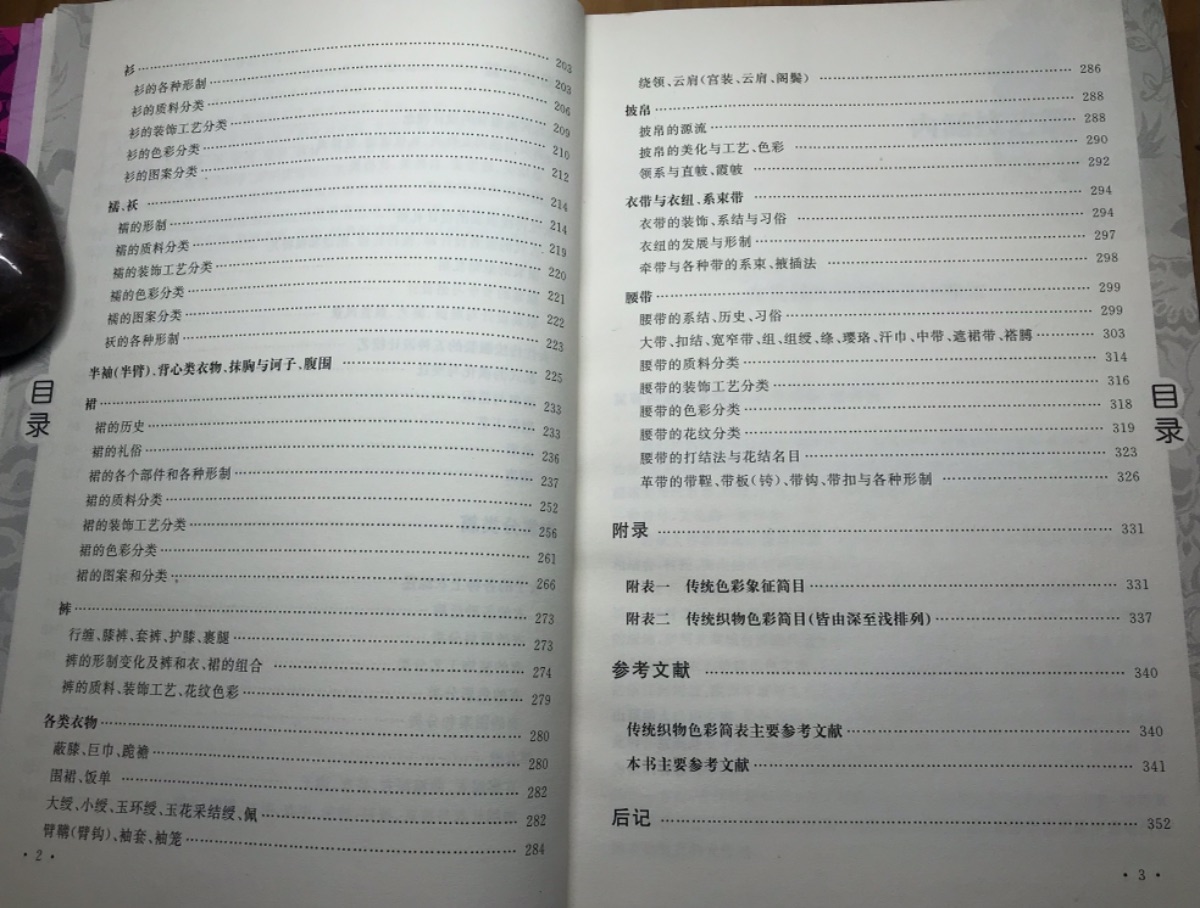 衫……203
衫的各种形制……203
衫的质料分类……206
衫的装饰工艺分类……209
衫的色彩分类……210
衫的图案分类……212
襦、袄……214
襦的形制……214
襦的质料分类……219
襦的装饰工艺分类……220
襦的色彩分类……221
襦的图案分类……222
袄的各种形制……223
半袖(半臂)、背心类衣物、抹胸与诃子、腹围……225
裙……233
裙的历史……233
裙的礼俗……236
裙的各个部件和各种形制……237
裙的质料分类……252
裙的装饰工艺分类……256
裙的色彩分类……261
裙的图案和分类……266
裤……273
行缠、膝裤、套裤、护膝、裹腿……273
裤的形制变化及裤和衣、裙的组合……274
裤的质料、装饰工艺、花纹色彩……279
各类衣物……280
蔽膝、巨巾、跪襜……280
围裙、饭单……282
大绶、小绶、玉环绶、玉花采结绶、佩……282
臂鞲(臂钩)、袖套、袖笼……284
·2·
目录
绕领、云肩(宫装、云肩、阁鬓)……286
披帛……288
披帛的源流……288
披帛的美化与工艺、色彩……290
领系与直帔、霞帔……292
衣带与衣组、系束带……294
衣带的装饰、系结与习俗……294
衣组的发展与形制……297
牵带与各种带的系束、掖插法……298
腰带……299
腰带的系结、历史、习俗……299
大带、扣结、宽窄带、组、组绶、绦、璎珞、汗巾、中带、遮裙带、褡膊……303
腰带的质料分类……314
腰带的装饰工艺分类……316
腰带的色彩分类……318
腰带的花纹分类……319
腰带的打结法与花结名目……323
革带的带鞓、带板(銙)、带钩、带扣与各种形制……326
附录……331
附表一 传统色彩象征简目……331
附表二 传统织物色彩简目(皆由深至浅排列)……337
参考文献……340
传统织物色彩简表主要参考文献……340
本书主要参考文献……341
后记……352
·3·
目录